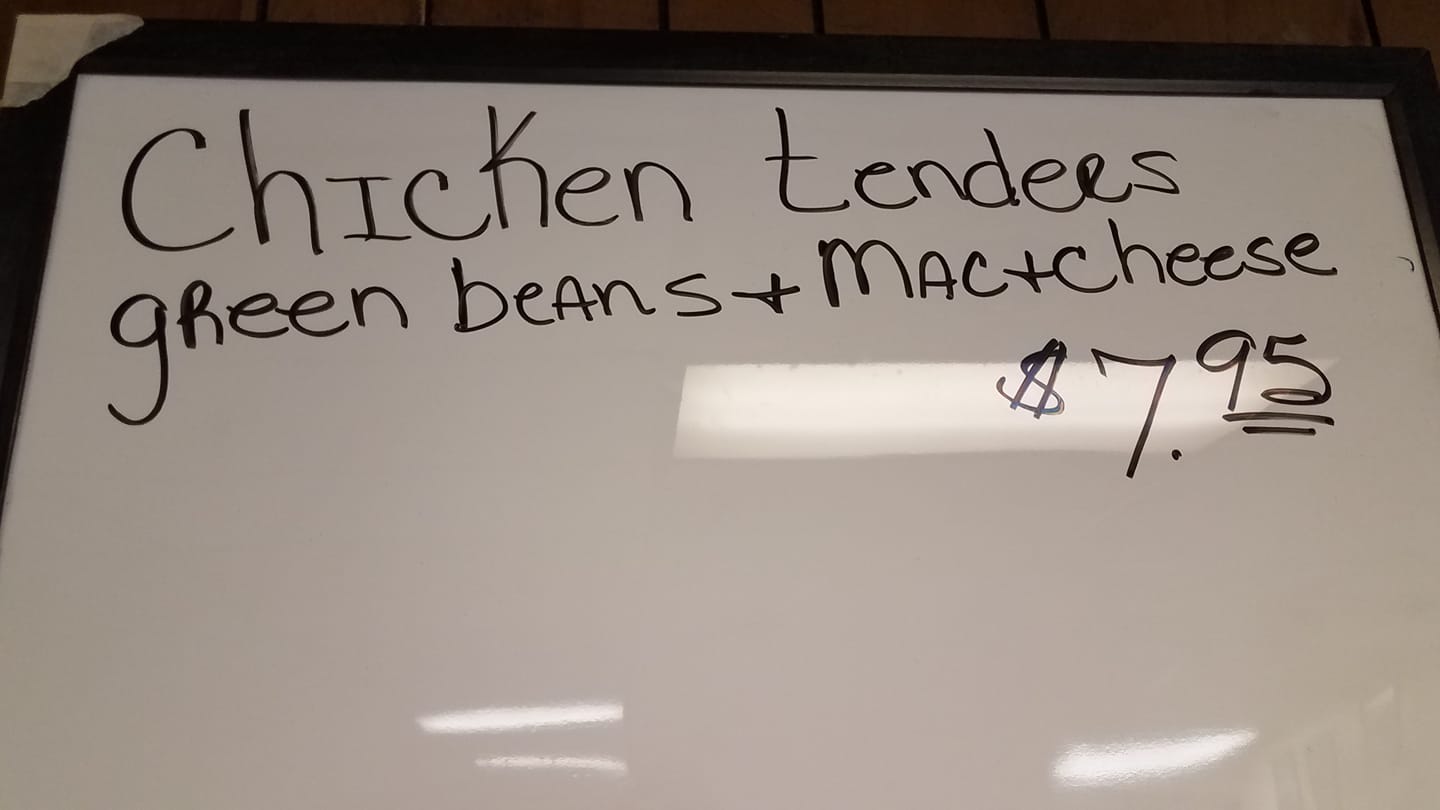 Chicken tenders
green beans + mac + cheese
$7.95